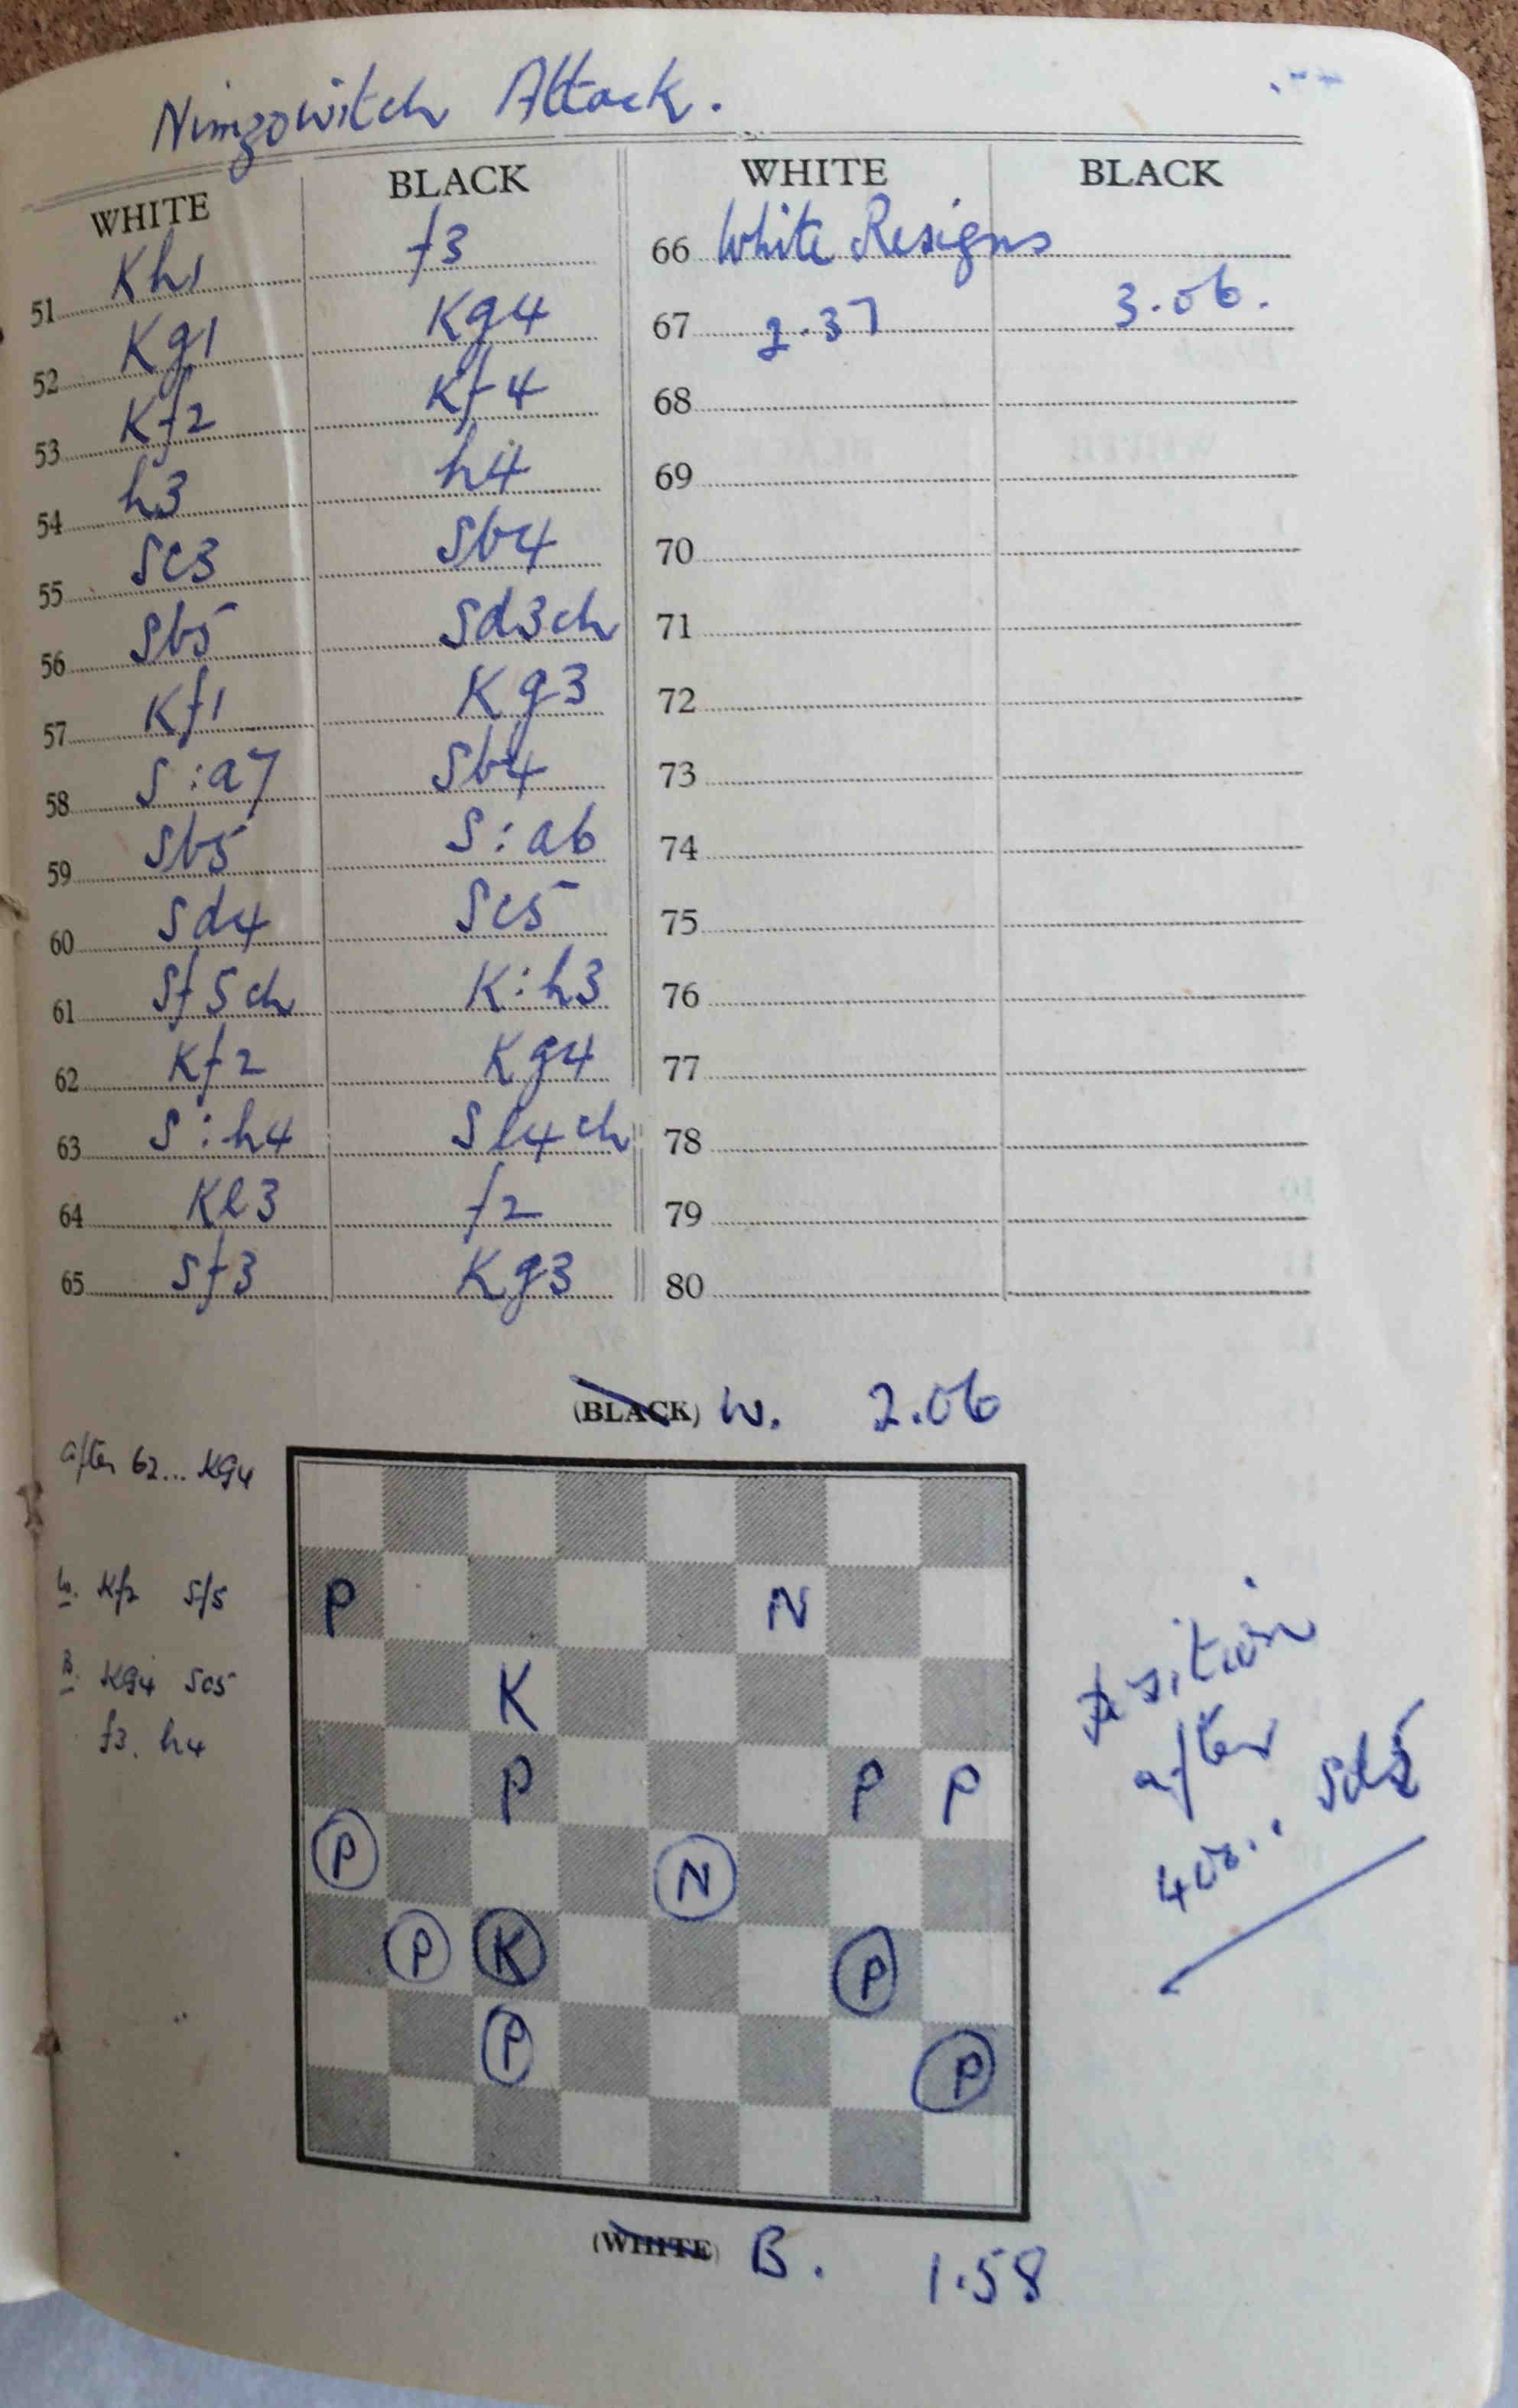 Nimzowitch Attack.
WHITE BLACK WHITE BLACK
51 Kh1 f3 66 White Resigns
52 Kg1 Kg4 67 2.37 3.06.
53 Kf2 Kf4 68
54 h3 h4 69
55 Sc3 Sb4 70
56 Sb5 Sd3ch 71
57 Kf1 Kg3 72
58 S:a7 Sb4 73
59 Sb5 S:a6 74
60 Sd4 Sc5 75
61 Sf5ch K:h3 76
62 Kf2 Kg4 77
63 S:h4 Se4ch 78
64 Ke3 f2 79
65 Sf3 Kg3 80
(BLACK) W. 2.06
after 62... Kg4
P N
W. Kf2 Sf5
K
B. Kg4 Sc5
f3. h4
P P P
P N
P K P
P P
Position
after
40... Sd5
(WHITE) B. 1.58